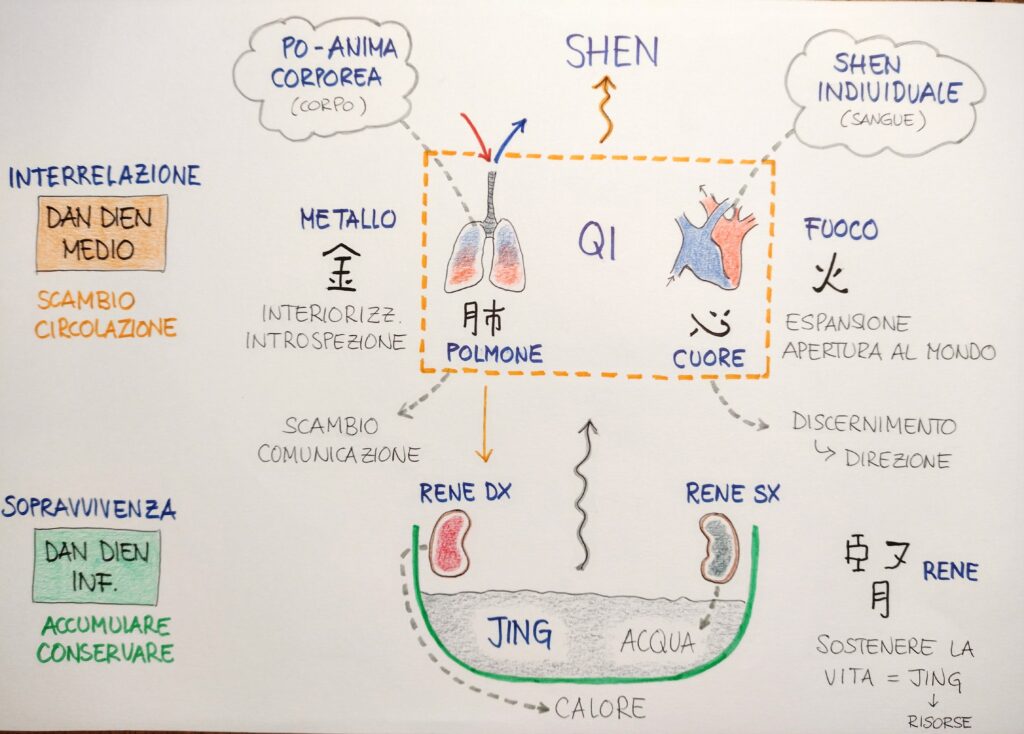 PO - ANIMA
CORPOREA
(CORPO)
SHEN
SHEN
INDIVIDUALE
(SANGUE)
INTERRELAZIONE
DAN DIEN
MEDIO
SCAMBIO
CIRCOLAZIONE
METALLO
金
INTERIORIZZ.
INTROSPEZIONE
QI
肺
POLMONE
心
CUORE
FUOCO
火
ESPANSIONE
APERTURA AL MONDO
SCAMBIO
COMUNICAZIONE
DISCERNIMENTO
DIREZIONE
SOPRAVVIVENZA
DAN DIEN
INF.
ACCUMULARE
CONSERVARE
RENE DX
RENE SX
JING
ACQUA
CALORE
RENE
SOSTENERE LA
VITA = JING
RISORSE